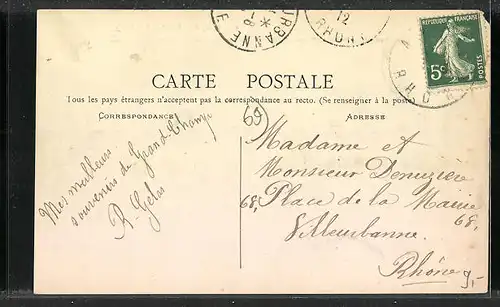 URBANNE
12
RHONE
RÉPUBLIQUE FRANÇAISE
5c
POSTES
RHO
CARTE POSTALE
Tous les pays étrangers n'acceptent pas la correspondance au recto. (Se renseigner à la poste)
CORRESPONDANCE
ADRESSE
69
Mes meilleurs
souvenirs de Grand-Champ
R. Gelas
Madame et
Monsieur Denuzière
68, Place de la Mairie 68,
Villeurbanne.
Rhône